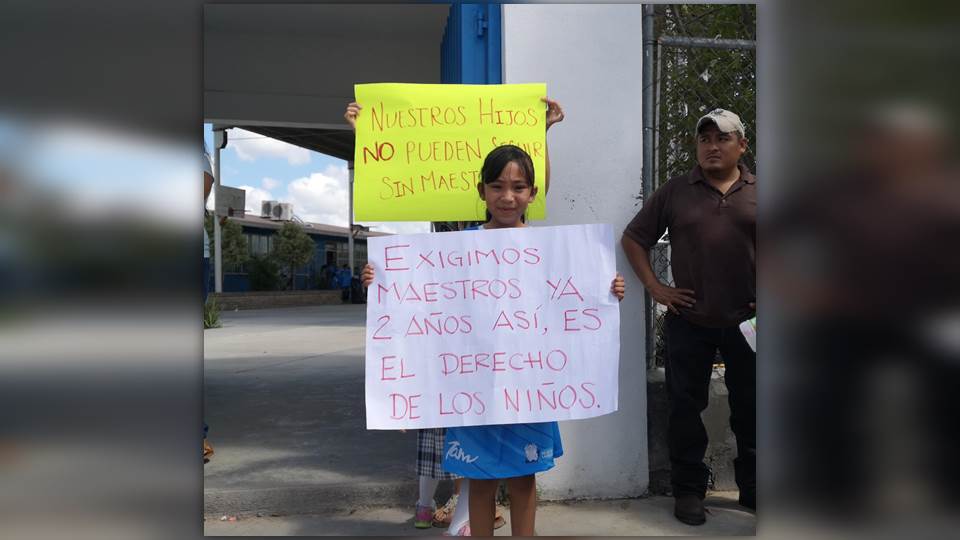 NUESTROS HIJOS
NO PUEDEN SEGUIR
SIN
EXIGIMOS
MAESTROS YA
2 AÑOS ASÍ, ES
EL DERECHO
DE LOS NIÑOS.
Tam